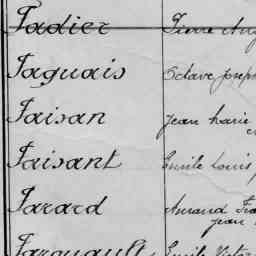 Fadier Pierre
Faguais Octave Joseph
Faisan Jean Marie
Faisant Emile Louis
Farard Armand
Jean
Farouault Emile Victor